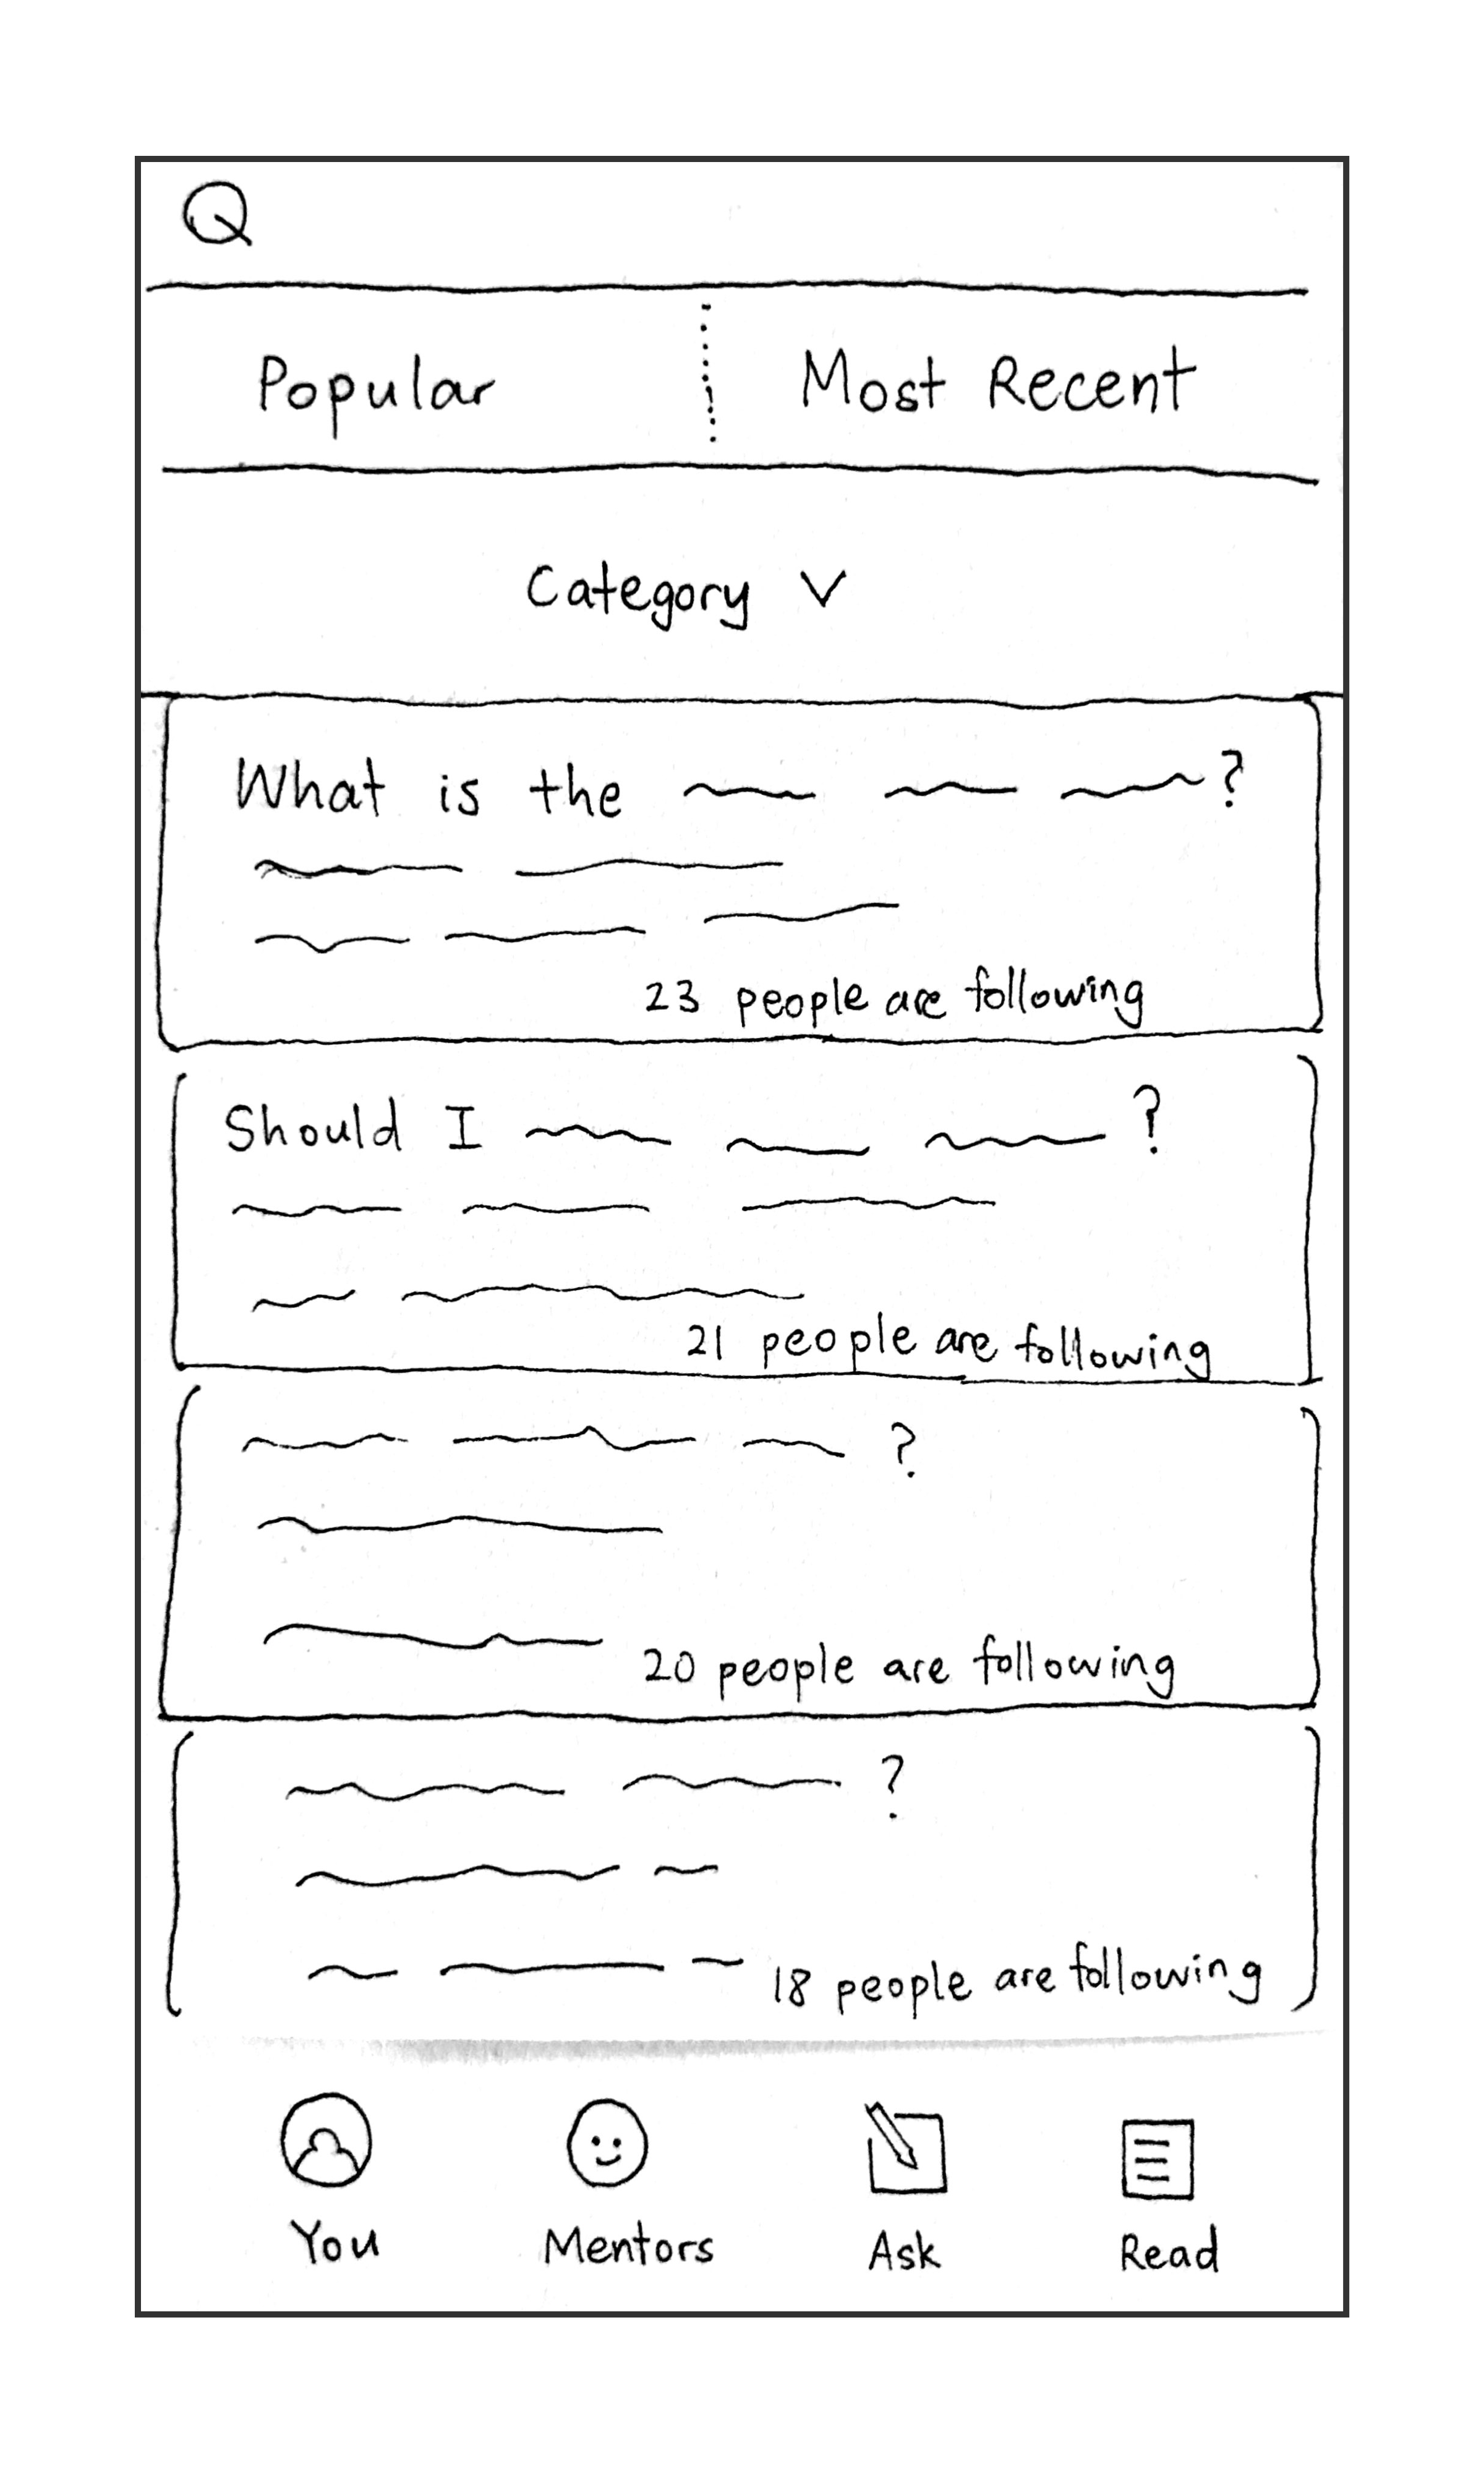 Q
Popular
Most Recent
Category V
What is the ?
23 people are following
Should I ?
21 people are following
?
20 people are following
?
18 people are following
You
Mentors
Ask
Read